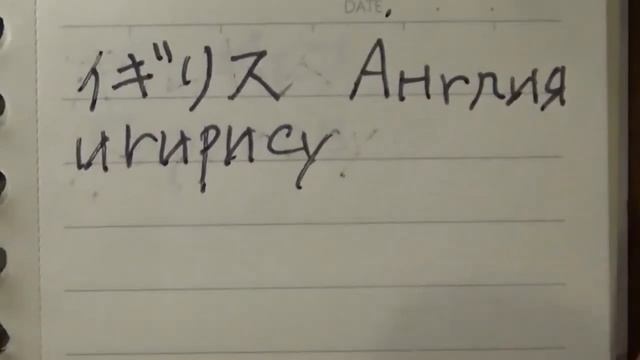 DATE
イギリス Англия
игирису